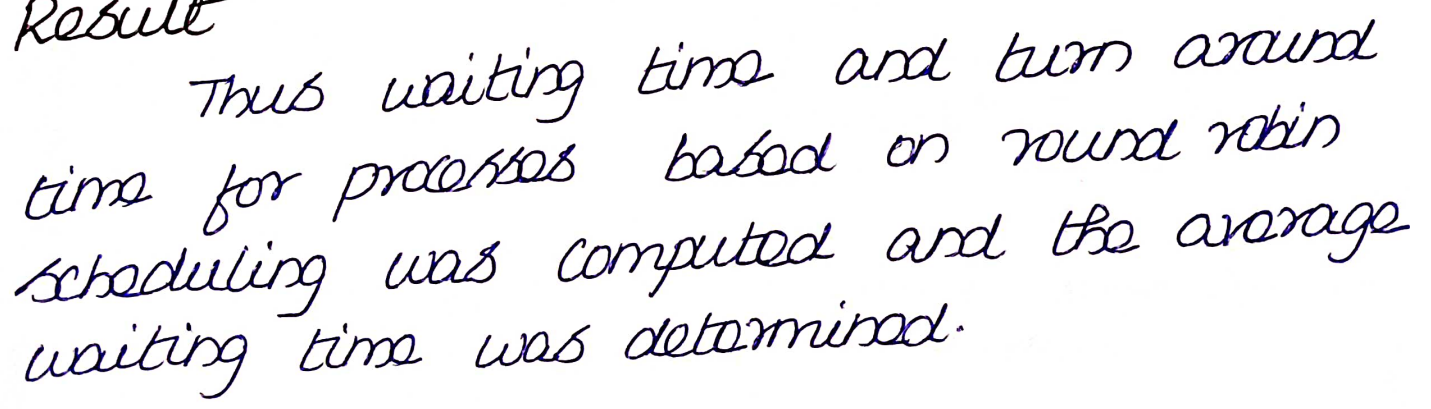 Result
Thus waiting time and turn around
time for processes based on round robin
scheduling was computed and the average
waiting time was determined.